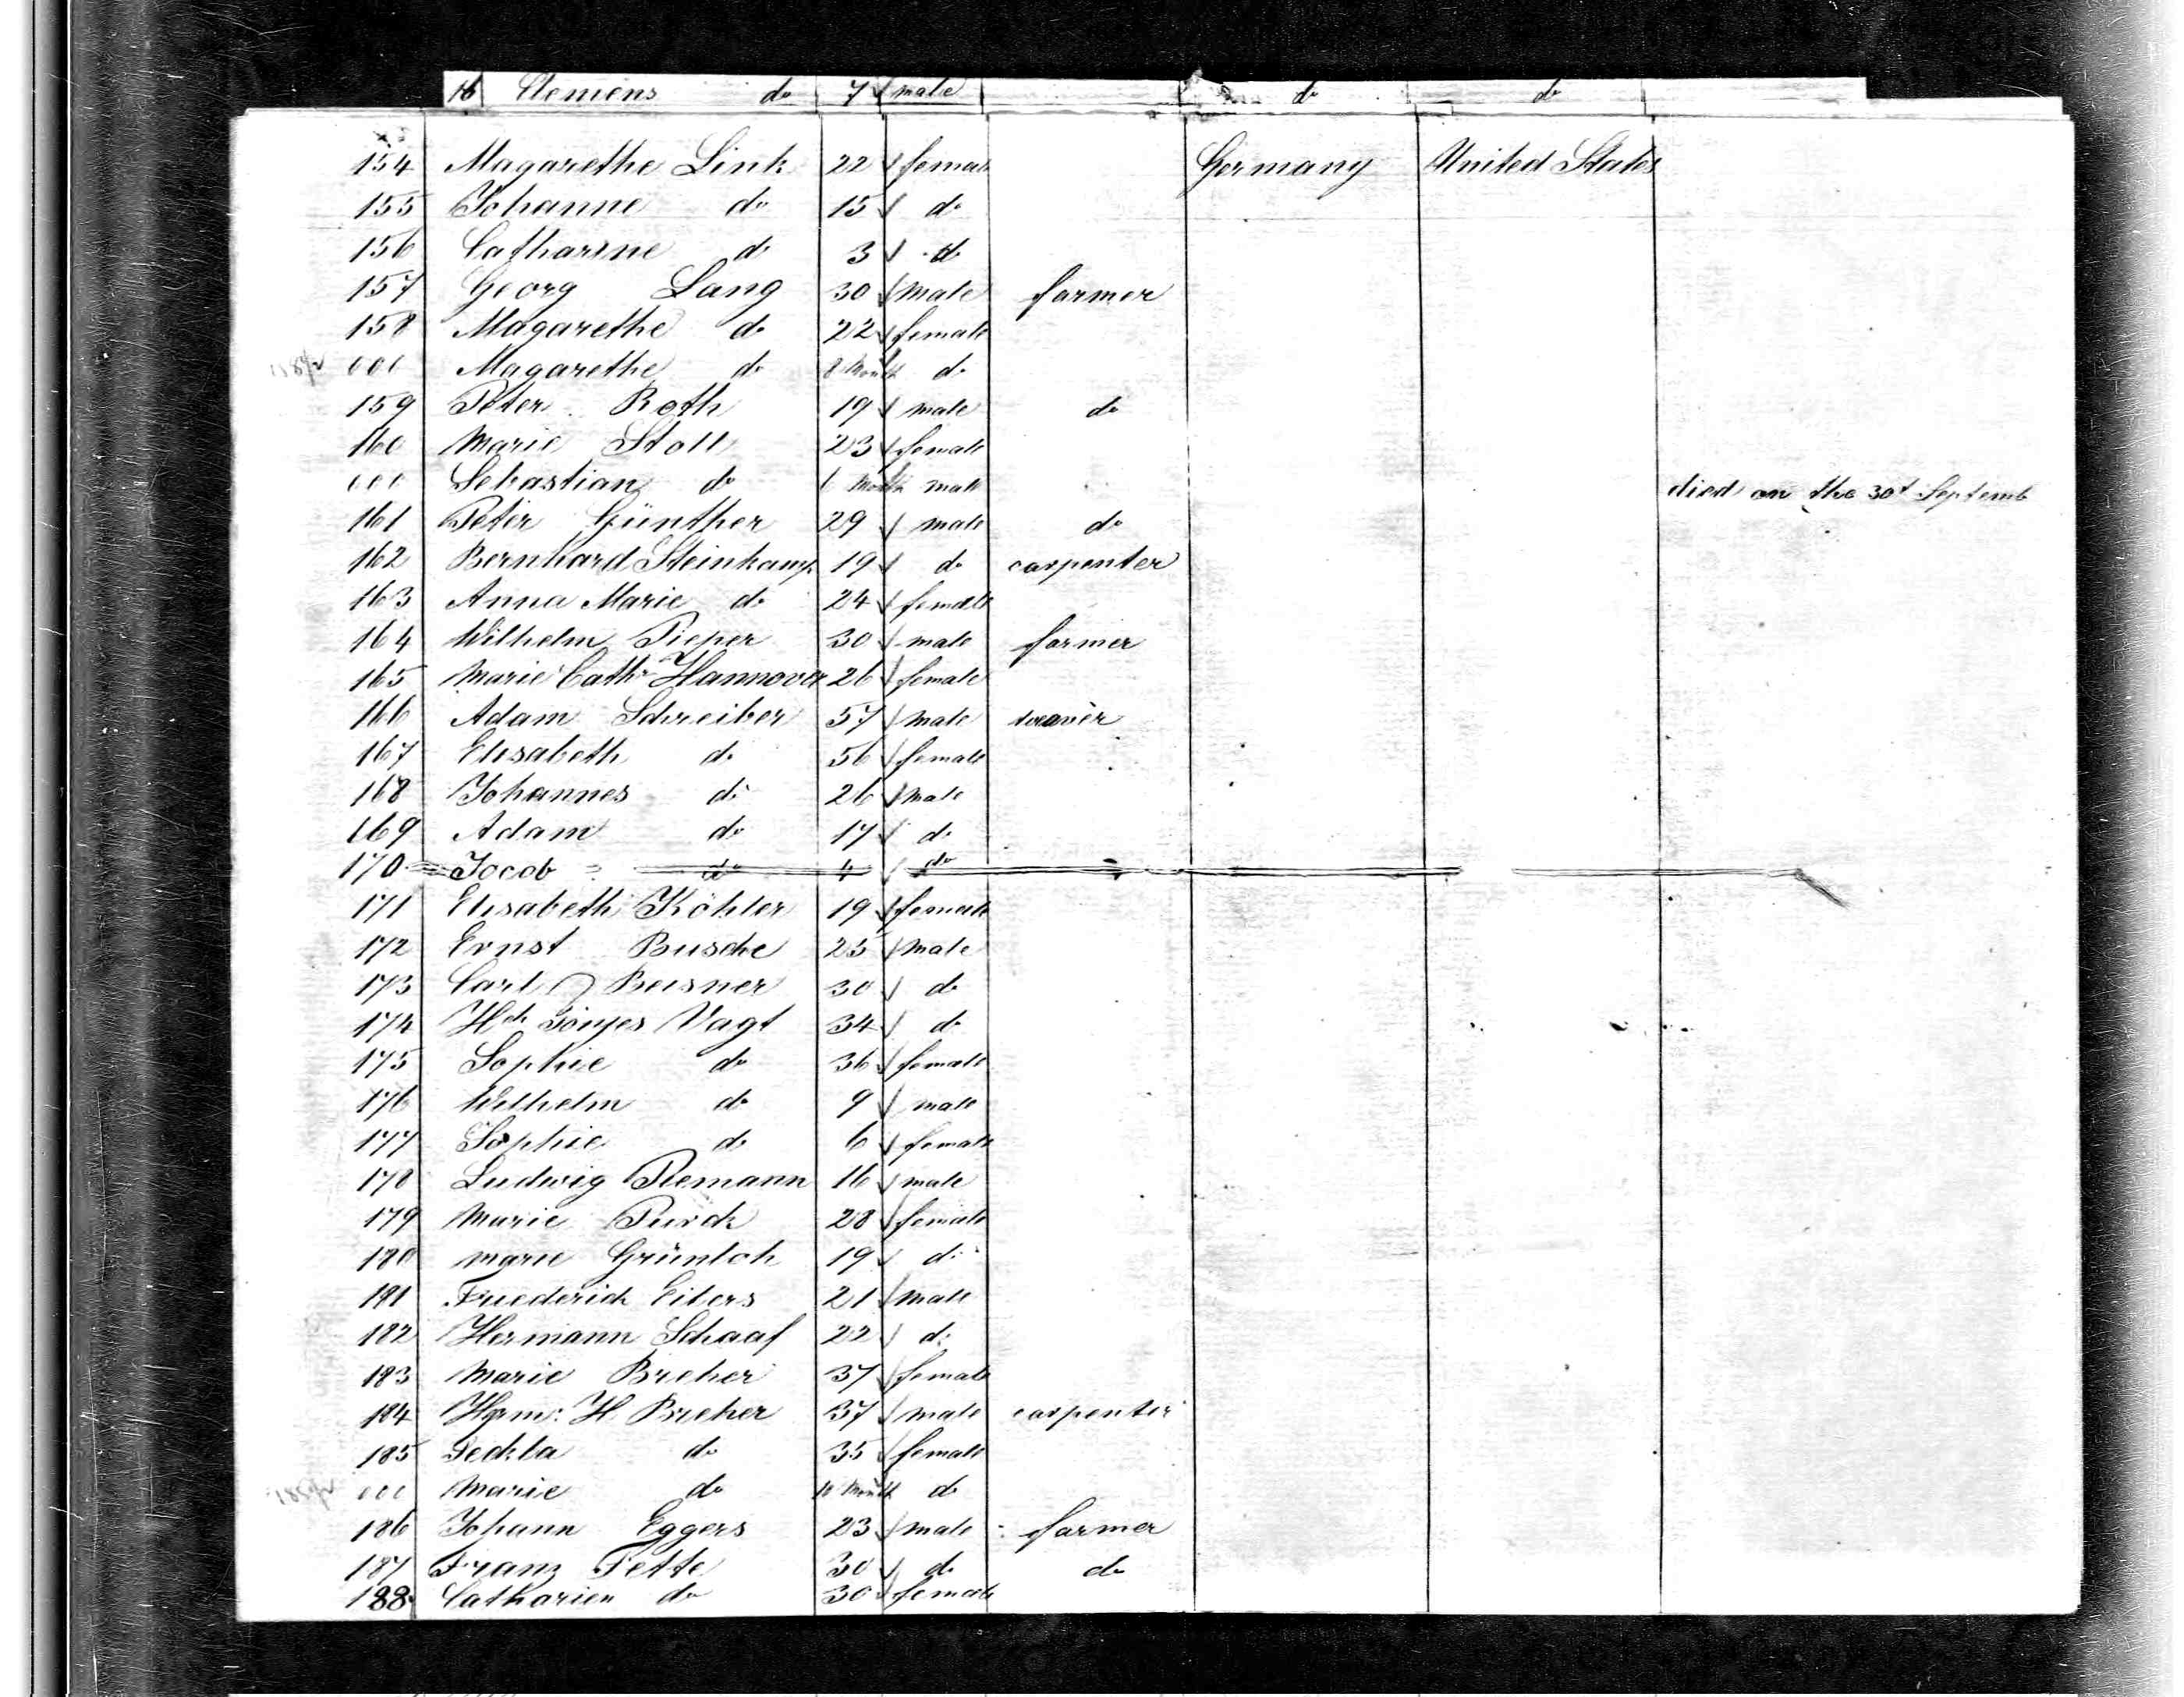 16 Clemens do 7 male do do
154 Magarethe Link 22 female Germany United States
155 Johanne do 15 do
156 Catharine do 3 do
157 Georg Lang 30 male farmer
158 Magarethe do 22 female
000 Magarethe do 8 Month do
159 Peter Roth 19 male do
160 Marie Stoll 23 female
000 Sebastian do 6 Month male died on the 30t Septemb
161 Peter Günther 29 male do
162 Bernhard Steinkamp 19 do carpenter
163 Anna Marie do 24 female
164 Wilhelm Pieper 30 male farmer
165 Marie Cathr Hannover 26 female
166 Adam Schreiber 57 male weaver
167 Elisabeth do 56 female
168 Johannes do 26 male
169 Adam do 17 do
170 Jacob do 4 do
171 Elisabeth Köhler 19 female
172 Ernst Busche 25 male
173 Carl Beisner 30 do
174 Hch Tönjes Vagt 34 do
175 Sophie do 36 female
176 Wilhelm do 9 male
177 Sophie do 6 female
178 Ludwig Riemann 16 male
179 Marie 28 female
180 Marie Grünloh 19 do
181 Friederich Eilers 21 male
182 Hermann Schaaf 22 do
183 Marie Breher 37 female
184 Herm: H. Breher 37 male carpenter
185 Teckla do 35 female
000 Marie do 10 Month do
186 Johann Eggers 23 male farmer
187 Franz Fette 30 do do
188 Catharien do 30 female